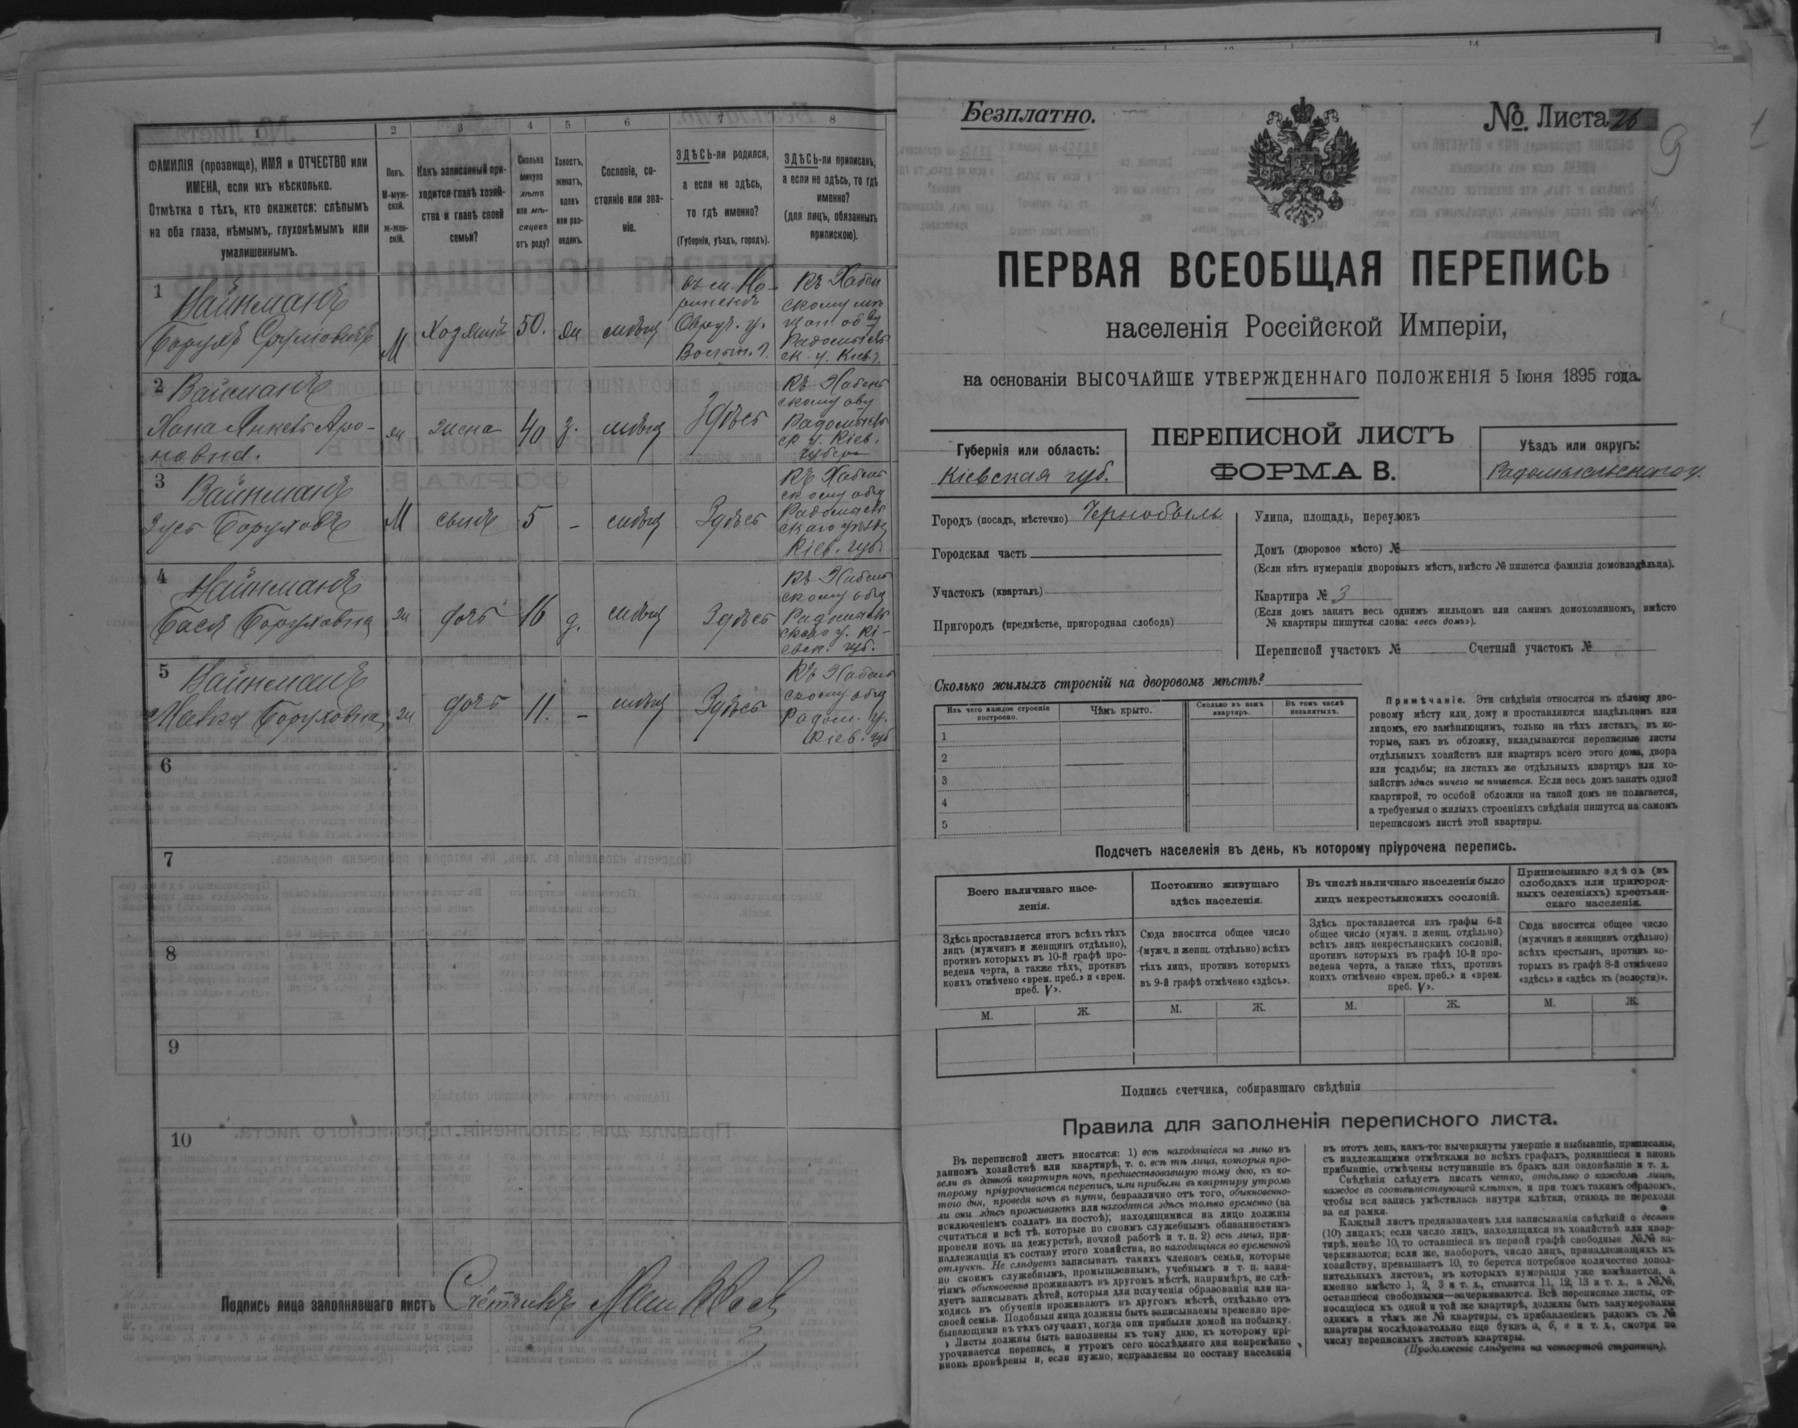 1
2
3
4
5
6
7
8
ФАМИЛІЯ (прозвище), ИМЯ и ОТЧЕСТВО или
ИМЕНА, если ихъ нѣсколько.
Отмѣтка о тѣхъ, кто окажется: слѣпымъ
на оба глаза, нѣмымъ, глухонѣмымъ или
умалишеннымъ.
Полъ.
М-муж-
ской.
Ж-жен-
скій.
Какъ записанный при-
ходится главѣ хозяй-
ства и главѣ своей
семьи?
Сколько
минуло
лѣтъ
или мѣ-
сяцевъ
отъ роду?
Холостъ,
женатъ,
вдовъ
или раз-
веденъ.
Сословіе, со-
стояніе или зва-
ніе.
ЗДѢСЬ-ли родился,
а если не здѣсь,
то гдѣ именно?
(Губернія, уѣздъ, городъ).
ЗДѢСЬ-ли приписанъ,
а если не здѣсь, то гдѣ
именно?
(для лицъ, обязанныхъ
припискою).
1
Вайнманъ
Борухъ
М
Хозяинъ
50.
Овруч. у.
Волын. г.
Къ Хабен
скому
Радомысль
ск. у. Кіев.
2 Вайнманъ
Хана Аро-
новна.
жена
40
з.
Здѣсь
Къ Хабен
скому обу
Радомысль
ск. у. Кіев.
губерн
3
Вайнманъ
Боруховъ
М
сынъ
5
-
Здѣсь
Къ Хабен
скому общ
Радомысль
скаго уѣзда
Кіев. губ.
4
Вайнманъ
Бася Боруховна
дочь
16
д.
Здѣсь
Къ Хабен
скому общ
Радомысль
скаго у. Кі-
евск. губ.
5
Вайнманъ
Хавка Боруховна
дочь
11.
-
Здѣсь
Къ Хабен
скому общ
Радом. у.
Кіев. губ
6
7
8
9
10
Подпись лица заполнявшаго листъ Счетчикъ
Безплатно.
№. Листа 26
9
ПЕРВАЯ ВСЕОБЩАЯ ПЕРЕПИСЬ
населенія Россійской Имперіи,
на основаніи ВЫСОЧАЙШЕ УТВЕРЖДЕННАГО ПОЛОЖЕНІЯ 5 Іюня 1895 года.
Губернія или область:
Кіевская губ.
ПЕРЕПИСНОЙ ЛИСТЪ
ФОРМА В.
Уѣздъ или округъ:
Радомысльскаго у.
Городъ (посадъ, мѣстечко) Чернобыль
Городская часть
Участокъ (кварталъ)
Пригородъ (предмѣстье, пригородная слобода)
Улица, площадь, переулокъ
Домъ (дворовое мѣсто) №
(Если нѣтъ нумераціи дворовыхъ мѣстъ, вмѣсто № пишется фамилія домовладѣльца).
Квартира № 3
(Если домъ занятъ весь однимъ жильцомъ или самимъ домохозяиномъ, вмѣсто
№ квартиры пишутся слова: «весь домъ»).
Переписной участокъ № Счетный участокъ №
Сколько жилыхъ строеній на дворовомъ мѣстѣ?
Изъ чего каждое строеніе
построено.
Чѣмъ крыто.
Сколько въ немъ
квартиръ.
Въ томъ числѣ
незанятыхъ.
1
2
3
4
5
Примѣчаніе. Эти свѣдѣнія относятся къ цѣлому дво-
ровому мѣсту или дому и проставляются владѣльцемъ или
лицомъ, его замѣняющимъ, только на тѣхъ листахъ, въ ко-
торые, какъ въ обложку, вкладываются переписные листы
отдѣльныхъ хозяйствъ или квартиръ всего этого дома, двора
или усадьбы; на листахъ же отдѣльныхъ квартиръ или хо-
зяйствъ здѣсь ничего не пишется. Если весь домъ занятъ одной
квартирой, то особой обложки на такой домъ не полагается,
а требуемыя о жилыхъ строеніяхъ свѣдѣнія пишутся на самомъ
переписномъ листѣ этой квартиры.
Подсчетъ населенія въ день, къ которому пріурочена перепись.
Всего наличнаго насе-
ленія.
Постоянно живущаго
здѣсь населенія.
Въ числѣ наличнаго населенія было
лицъ некрестьянскихъ сословій.
Приписаннаго здѣсь (въ
слободахъ или пригород-
ныхъ селеніяхъ) крестьян-
скаго населенія.
Здѣсь проставляется итогъ всѣхъ тѣхъ
лицъ (мужчинъ и женщинъ отдѣльно),
противъ которыхъ въ 10-й графѣ про-
ведена черта, а также тѣхъ, противъ
коихъ отмѣчено «врем. преб.» и «врем.
преб. V».
Сюда вносится общее число
(мужч. и женщ. отдѣльно) всѣхъ
тѣхъ лицъ, противъ которыхъ
въ 9-й графѣ отмѣчено «здѣсь».
Здѣсь проставляется изъ графы 6-й
общее число (мужч. и женщ. отдѣльно)
всѣхъ лицъ некрестьянскихъ сословій,
противъ которыхъ въ графѣ 10-й про-
ведена черта, а также тѣхъ, противъ
коихъ отмѣчено «врем. преб.» и «врем.
преб. V».
Сюда вносится общее число
(мужчинъ и женщинъ отдѣльно)
всѣхъ крестьянъ, противъ ко-
торыхъ въ графѣ 8-й отмѣчено
«здѣсь» и «здѣсь къ (волости)».
М. Ж. М. Ж. М. Ж. М. Ж.
Подпись счетчика, собиравшаго свѣдѣнія
Правила для заполненія переписного листа.
Въ переписной листъ вносятся: 1) всѣ находящіеся на лицо въ
данномъ хозяйствѣ или квартирѣ, т. е. всѣ тѣ лица, которыя про-
вели въ данной квартирѣ ночь, предшествовавшую тому дню, къ ко-
торому пріурочивается перепись, или прибыли въ квартиру утромъ
того дня, проведя ночь въ пути, безразлично отъ того, обыкновенно-
ли они здѣсь проживаютъ или находятся здѣсь только временно (за
исключеніемъ солдатъ на постоѣ); находящимися на лицо должны
считаться и всѣ тѣ, которые по своимъ служебнымъ обязанностямъ
провели ночь на дежурствѣ, ночной работѣ и т. п. 2) всѣ лица, при-
надлежащія къ составу этого хозяйства, но находящіяся во временной
отлучкѣ. Не слѣдуетъ записывать такихъ членовъ семьи, которые
по своимъ служебнымъ, промышленнымъ, учебнымъ и т. п. заня-
тіямъ обыкновенно проживаютъ въ другомъ мѣстѣ, напримѣръ, не слѣ-
дуетъ записывать дѣтей, которыя для полученія образованія или на-
ходясь въ обученіи проживаютъ въ другомъ мѣстѣ, отдѣльно отъ
своей семьи. Подобныя лица должны быть записываемы временно пре-
бывающими въ тѣхъ случаяхъ, когда они прибыли домой на побывку.
Листы должны быть заполнены къ тому дню, къ которому прі-
урочивается перепись, и утромъ сего послѣдняго дня непремѣнно
вновь провѣрены и, если нужно, исправлены по составу населенія
въ этотъ день, какъ-то: вычеркнуты умершіе и выбывшіе, приписаны,
съ надлежащими отмѣтками во всѣхъ графахъ, родившіеся и вновь
прибывшіе, отмѣчены вступившіе въ бракъ или овдовѣвшіе и т. д.
Свѣдѣнія слѣдуетъ писать четко, отдѣльно о каждомъ лицѣ,
каждое въ соотвѣтствующей клѣткѣ, и при томъ такимъ образомъ,
чтобы вся запись умѣстилась внутри клѣтки, отнюдь не переходя
за ея рамки.
Каждый листъ предназначенъ для записыванія свѣдѣній о десяти
(10) лицахъ; если число лицъ, находящихся въ хозяйствѣ или квар-
тирѣ, менѣе 10, то оставшіеся въ первой графѣ свободные №№ за-
черкиваются; если же, наоборотъ, число лицъ, принадлежащихъ къ
хозяйству, превышаетъ 10, то берется потребное количество допол-
нительныхъ листовъ, въ которыхъ нумерація уже измѣняется, а
именно вмѣсто 1, 2, 3 и т. д., ставится 11, 12, 13 и т. д., а №№,
оставшіеся свободными—зачеркиваются. Всѣ переписные листы, от-
носящіеся къ одной и той же квартирѣ, должны быть занумерованы
однимъ и тѣмъ же № квартиры, съ прибавленіемъ рядомъ съ №
квартиры послѣдовательно еще буквъ а, б, в и т. д., смотря по
числу переписныхъ листовъ квартиры.
(Продолженіе слѣдуетъ на четвертой страницѣ).